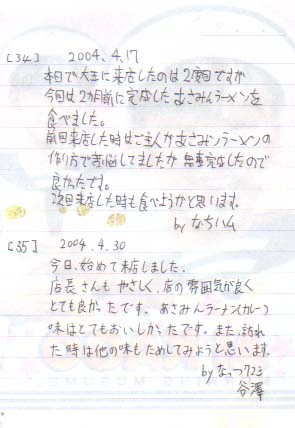 [34] 2004.4.17
本日で大王に来店したのは2度目ですが
今回は2カ月前に完成したむさみんラーメンを
食べました。
前回来店した時はご主人がむさみンラーメンの
作り方で苦悩してましたが無事完成したので
良かたです。
次回来店した時も食べようかと思います。
by なちハム
[35] 2004.4.30
今日、始めて来店しました。
店長さんもやさしく、店の雰囲気が良く
とても良かったです。あさみんラーメン(カレー)
味はとてもおいしかったです。また、訪れ
た時は他の味もためしてみようと思います。
by なっつ723
谷澤